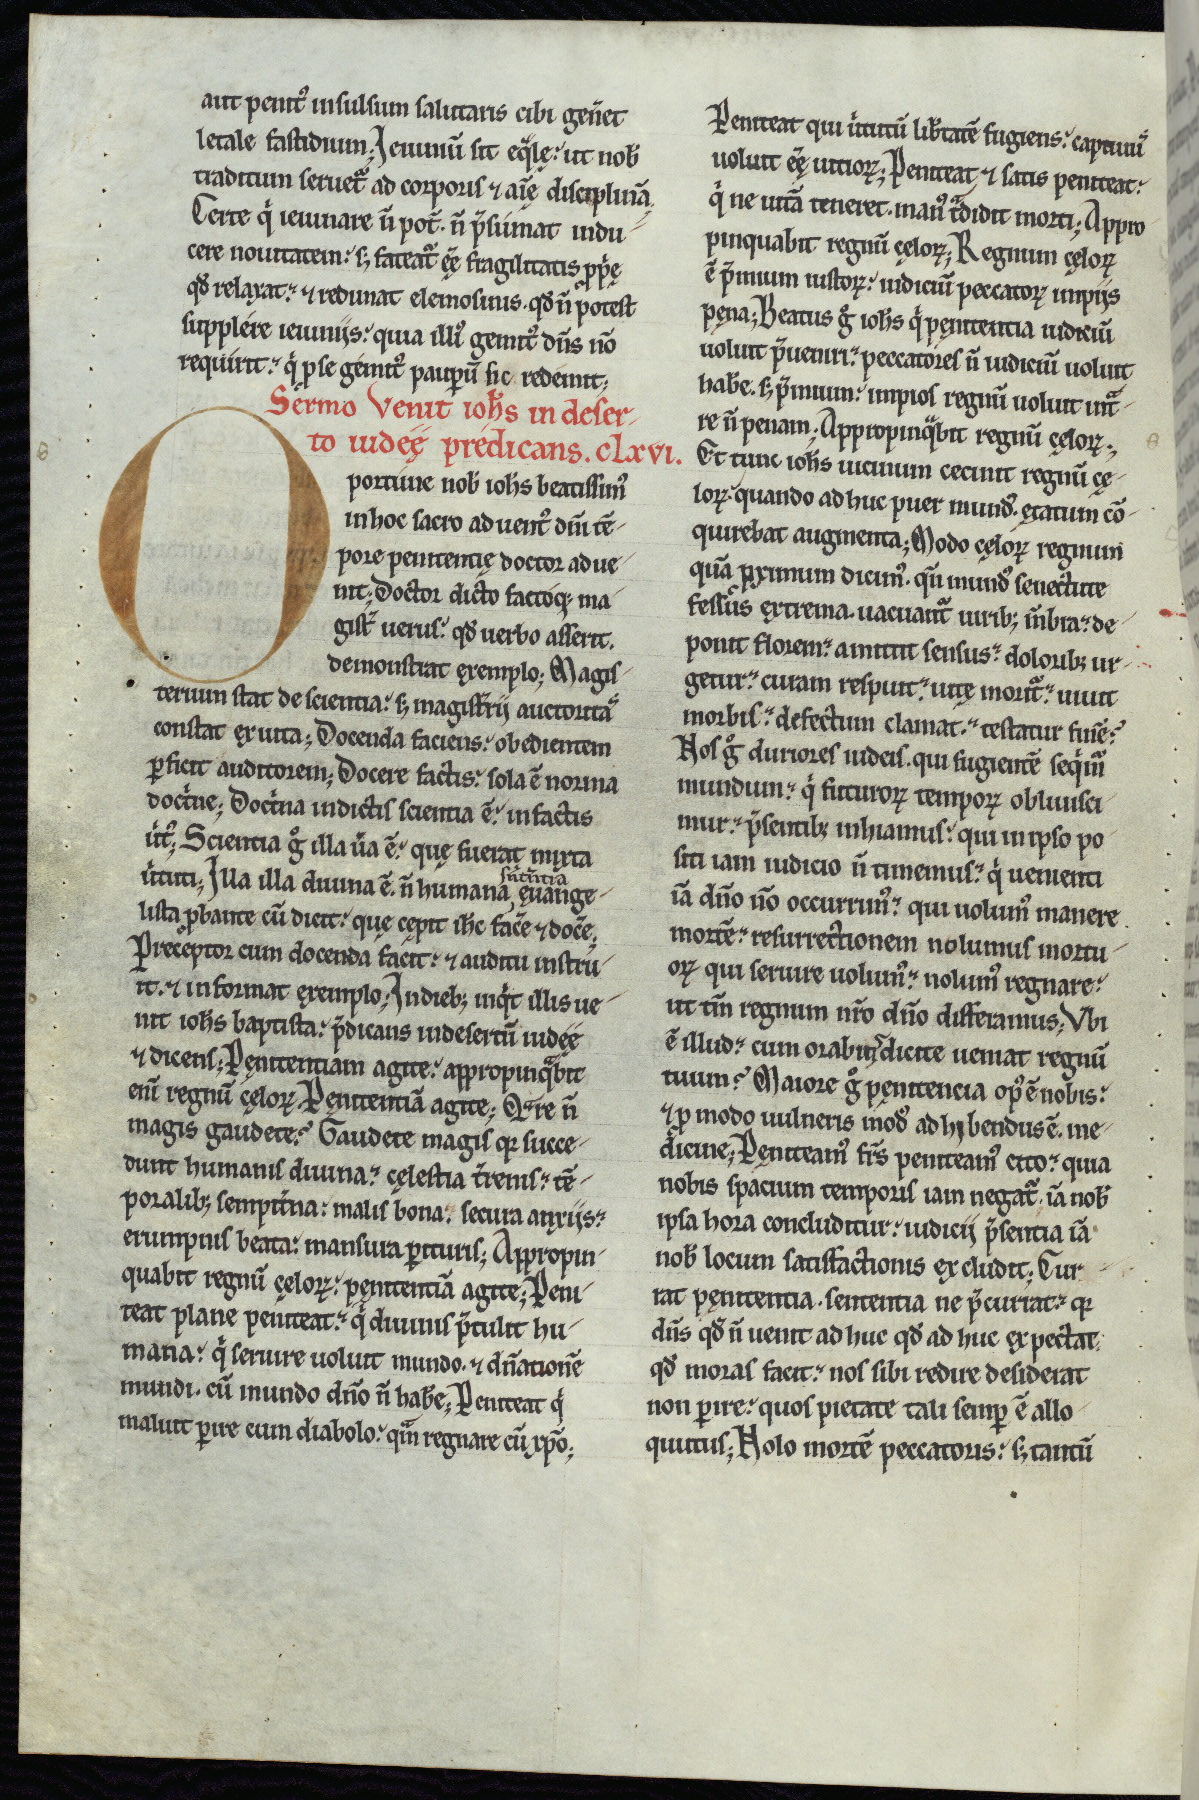 aut penit᷒ insulsum salutaris cibi gen̄et
letale fastidium; Ieiuniū sit eq̄le᷒ ut nob̄
traditum seruet᷑ ad corporis ⁊ aīę disciplinā.
Certe q̇ ieiunare n̄ pot̄. n̄ p̄sumat indu-
cere nouitatem᷒ sꝫ fateat᷑ eę̄ fragilitatis ꝓp̄ę
qđ relaxat᷒ ⁊ redimat elemosinis. qđ n̄ potest
supplére ieiuniis᷒ quia illi᷒ gemit᷒ dn̄s nō
requirit᷒ q̇ p se gémit᷒ pauꝑū sic redemit;
Sermo Venit ioh̄s in deser-
to iudeę prędicans. clxvi.
Oportune nob̄ ioh̄s beatissim᷒
in hoc sacro aduent᷒ dn̄i tē-
pore penitentię doctor adue-
nit; Doctor dicto factoqꝫ ma-
gist̄ uerus᷒ qđ uerbo asserit.
demonstrat exemplo; Magis-
terium stat de scientia᷒ sꝫ magisterii auctorita᷒
constat ex uita; Docenda faciens᷒ obedientem
ꝑficit auditorem; Docere factis᷒ sola ē norma
doct̄ne; Doct̄na in dictis scientia ē᷒ in factis
uirt᷒; Scientia g̊ illa u̅a ē᷒ quę fuerat mixta
uirtuti; Illa illa diuina ē. n̄ humana, euange-
sn̄tentia
lista ꝓbante cū dicit᷒ quę cepit ih̄c fac̄e ⁊ doc̄e;
Preceptor cum docenda facit᷒ ⁊ auditu instru-
it. ⁊ informat exemplo; In dieb; inq̇t illis ue-
nit ioh̄s baptista᷒ p̄dicans in desertū iudeę
⁊ dicens; Penitentiam agite᷒ appropinq̄bit
eni̅ regnū cęloꝝ. Penitentiā agite; Q̄re n̄
magis gaudete᷒ Gaudete magis qꝫ succe-
dunt humanis diuina᷒ cęlestia t̄renis᷒ tē-
poralib; sempit̄na᷒ malis bona᷒ secura anxiis᷒
erumpnis beata᷒ mansura ꝑituris; Appropin-
quabit regnū cęloꝝ᷒ penitentiā agite; Peni-
teat plane peniteat᷒ q̇ diuinis p̄tulit hu-
mana᷒ q̇ seruire uoluit mundo. ⁊ dn̄ationē
mundi. cū mundo dn̄o n̄ hab̄e; Peniteat q̇
maluit ꝑire cum diabolo᷒ qm̄ regnare cū xp̄o;
Peniteat qui uirtutū lib̄tatē fugiens᷒ captiuu᷒
uoluit eę̄ uitioꝝ; Peniteat, ⁊ satis peniteat᷒
q̇ ne uitā teneret. man᷒ t̄didit morti; Appro-
pinquabit regnū cęloꝝ; Regnum cęloꝝ
ē p̄mium iustoꝝ᷒ iudiciū peccatoꝝ impiis
pena; Beatus g̊ ioh̄s q̇ penitentia iudiciū
uoluit p̄ueniri᷒ peccatores n̄ iudiciū uoluit
hab̄e. sꝫ p̄mium᷒ impios regnū uoluit int̄-
re n̄ penam; Appropinq̄bit regnū cęloꝝ;
Et tunc ioh̄s uicinum cecinit regnū cę-
loꝝ quando ad huc puer mund᷒. ętatum cō-
quirebat augmenta; Modo cęloꝝ regnum
quā ꝓximum dicim᷒. qn̄ mund᷒ senectute
fessus extrema. uacuant᷑ uirib; m̄bra᷒ de-
ponit florem᷒ amittit sensus᷒ dolorib; ur-
getur᷒ curam respuit᷒ uitę morit᷑᷒ uiuit
morbis᷒ defectum clamat᷒ testatur finē᷒
Nos g̊ duriores iudeis. qui fugientē seq̇m᷒
mundum᷒ q̇ futuroꝝ tempoꝝ obliuisci-
mur᷒ p̄sentib; inhiamus᷒ qui in ipso po-
siti iam iudicio n̄ timemus᷒ q̇ uenienti
iā dn̄o nō occurrim᷒᷒ qui uolum᷒ manere
mortē᷒ resurrectionem nolumus mortu-
oꝝ qui seruire uolum᷒᷒ nolum᷒ regnare᷒
ut tm̄ regnum nr̄o dn̄o differamus; Vbi
ē illud᷒ cum orabitis dicite ueniat regnū
tuum᷒ Maiore g̊ penitencia op᷒ ē nobis᷒
⁊ p modo uulneris mod᷒ adhibendus ē. me-
dicine; Peniteam᷒ fr̄s peniteam᷒ cito᷒ quia
nobis spacium temporis iam negat᷑. iā nob̄
ipsa hora concluditur᷒ iudicii p̄sentia iā
nob̄ locum satisfactionis excludit; Cur-
rat penitentia. sententia ne p̄currat᷒ qꝫ
dn̄s qđ n̄ uenit ad huc qđ ad huc expectat,
qđ moras facit᷒ nos sibi redire desiderat
non ꝑire᷒ quos pietate tali semꝑ ē allo-
quutus; Nolo mortē peccatoris᷒ sꝫ tantū